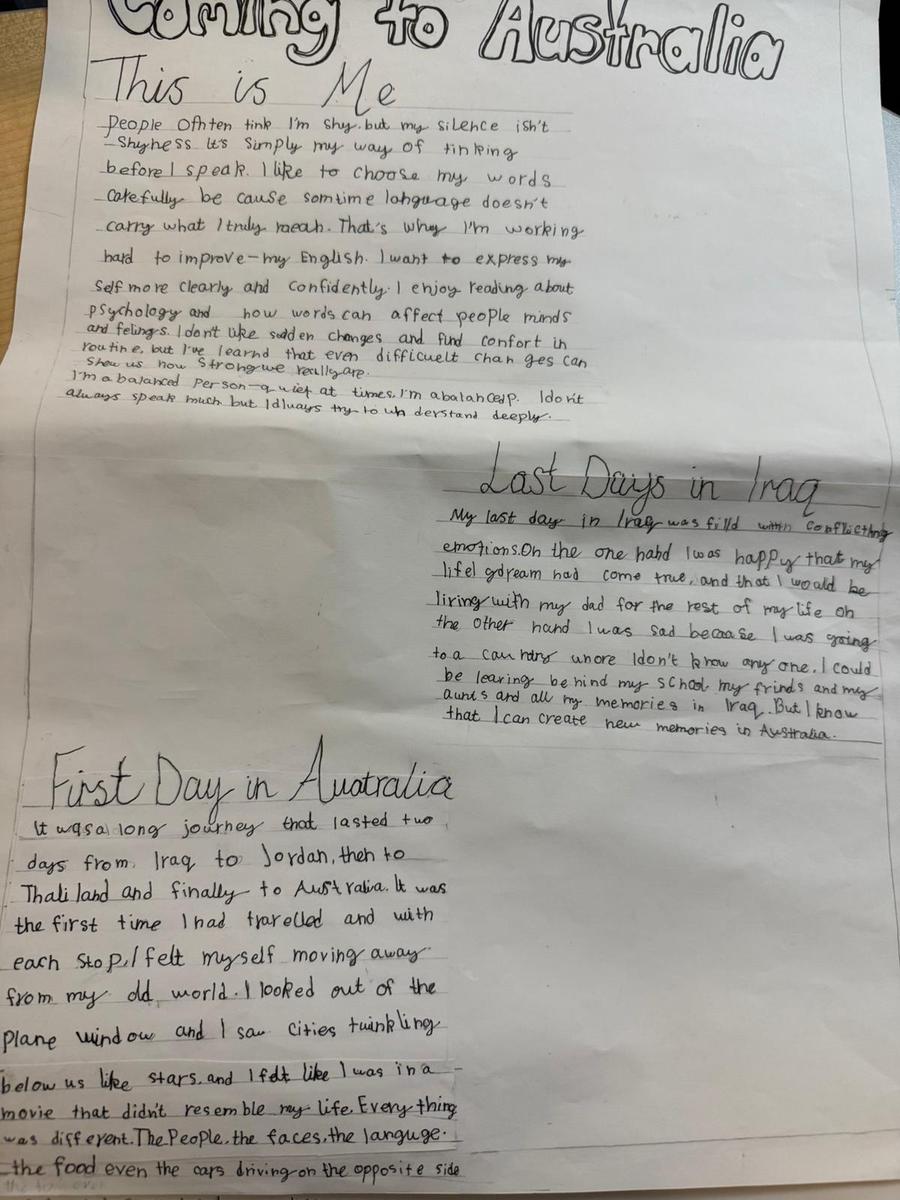 Coming to Australia
This is Me
People Ofhten tink I'm shy. but my silence isn't
Shyness It's Simply my way of tinking
before I speak. I like to choose my words
carefully be cause somtime language doesn't
carry what I truly mean. That's why I'm working
hard to improve - my English. I want to express my
self more clearly and confidently. I enjoy reading about
psychology and how words can affect people minds
and felings. I don't like sudden changes and find confort in
routine, but I've learnd that even difficuelt chan ges can
show us how strong we really are.
I'm a balanced person - quiet at times. I'm a balanced p. I don't
always speak much but I always try to un derstand deeply.
Last Days in Iraq
My last day in Iraq was filld within conflicting
emotions. On the one hand I was happy that my
life gdream had come true, and that I would be
living with my dad for the rest of my life on
the other hand I was sad because I was going
to a countary where I don't know any one. I could
be leaving behind my school my frinds and my
aunts and all my memories in Iraq. But I know
that I can create new memories in Australia.
First Day in Australia
It was a long journey that lasted two
days from Iraq to Jordan, then to
Thaliland and finally to Australia. It was
the first time I had travelled and with
each stop, I felt myself moving away
from my old world. I looked out of the
plane window and I saw cities twinkling
below us like stars. and I felt like I was in a
movie that didn't resemble my life. Every thing
was different. The People. the faces. the languge.
the food even the cars driving on the opposite side